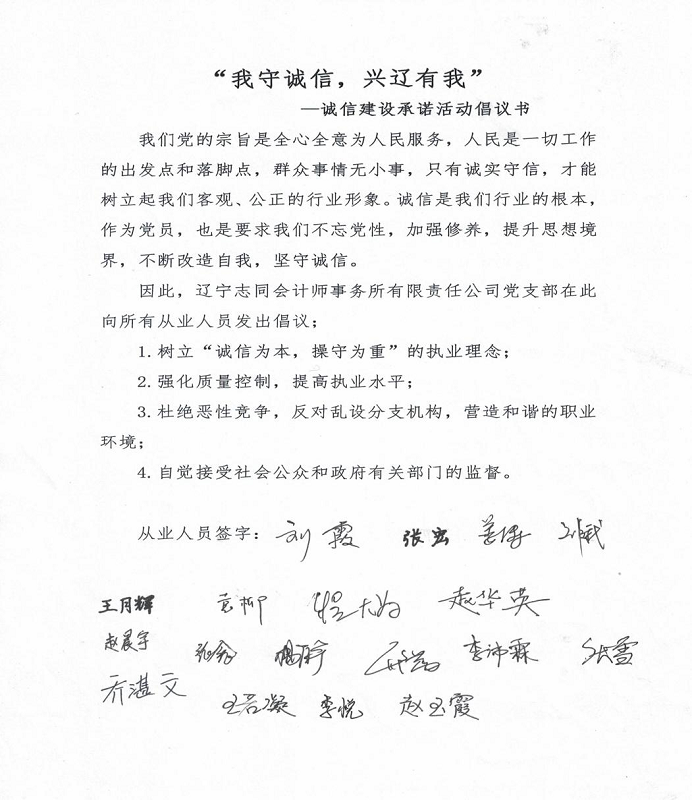 “我守诚信，兴辽有我”
—诚信建设承诺活动倡议书
我们党的宗旨是全心全意为人民服务，人民是一切工作
的出发点和落脚点，群众事情无小事，只有诚实守信，才能
树立起我们客观、公正的行业形象。诚信是我们行业的根本，
作为党员，也是要求我们不忘党性，加强修养，提升思想境
界，不断改造自我，坚守诚信。
因此，辽宁志同会计师事务所有限责任公司党支部在此
向所有从业人员发出倡议；
1.树立“诚信为本，操守为重”的执业理念；
2.强化质量控制，提高执业水平；
3.杜绝恶性竞争，反对乱设分支机构，营造和谐的职业
环境；
4.自觉接受社会公众和政府有关部门的监督。
从业人员签字：刘霞 张宏
王月辉 赵华英
赵晨宇 李沛霖 张雪
乔湛文 王若凝 李悦 赵玉霞